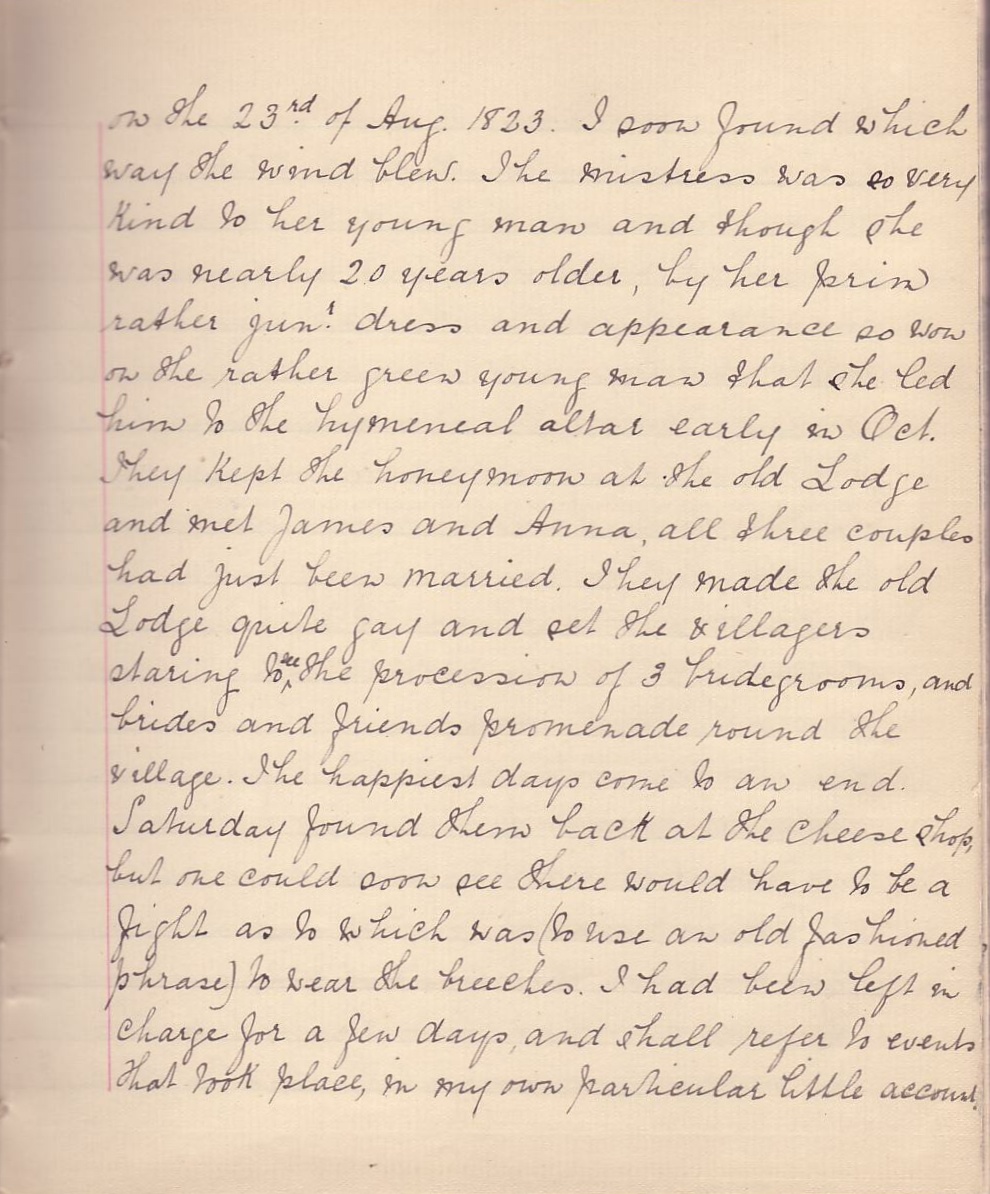 on the 23rd of Aug. 1823. I soon found which
way the wind blew. The mistress was so very
kind to her young man and though she
was nearly 20 years older, by her prim
rather junr. dress and appearance so won
on the rather green young man that she led
him to the hymeneal altar early in Oct.
They kept the honeymoon at the old Lodge
and met James and Anna, all three couples
had just been married. They made the old
Lodge quite gay and set the villagers
staring to see the procession of 3 bridegrooms, and
brides and friends promenade round the
village. The happiest days come to an end.
Saturday found them back at the cheese shop,
but one could soon see there would have to be a
fight as to which was (to use an old fashioned
phrase) to wear the breeches. I had been left in
charge for a few days, and shall refer to events
that took place, in my own particular little account.